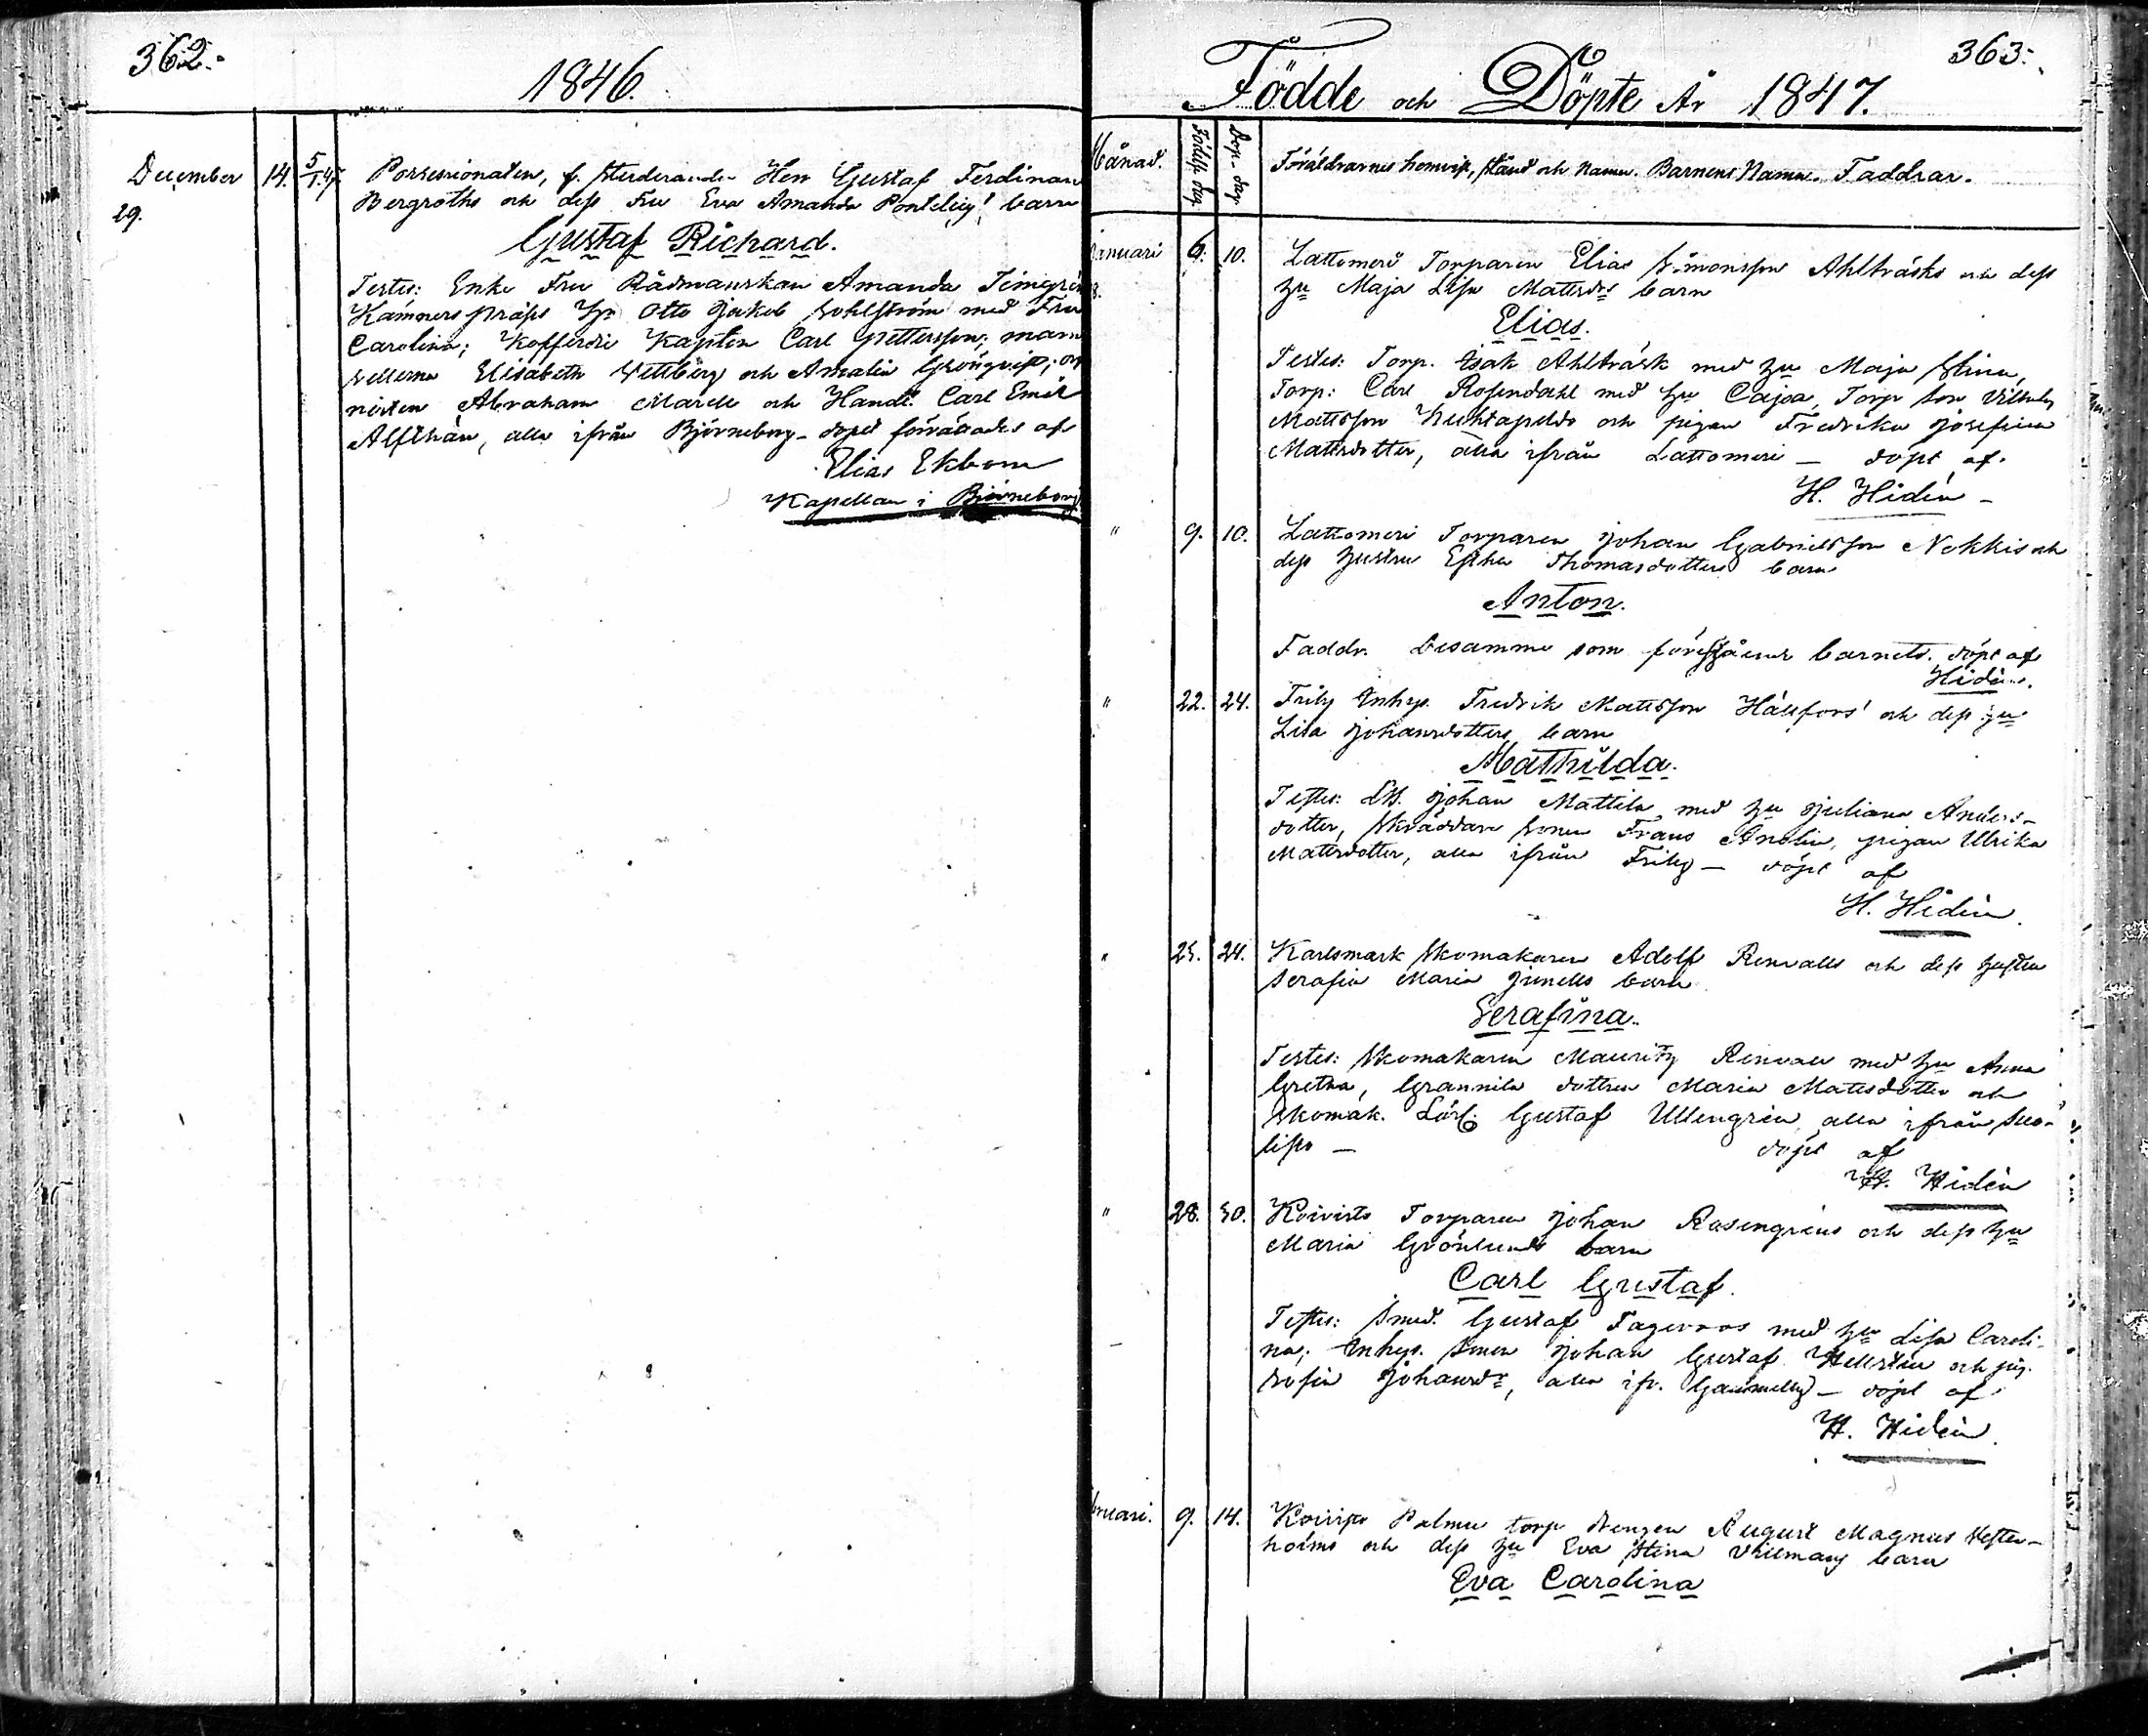 362.
1846.
December 14. 5/1.47. Possessionaten, f. Studeranden Herr Gustaf Ferdinand
29. Bergroths och dess Fru Eva Amanda barn
Gustaf Richard.
Testes: Enke Fru Rådmanskan Amanda
Kämners Hr Otto Jakob med Fru
Carolina; Kofferdie Kapten Carl Pettersson; mam
sellerna Elisabeth och Amalia Grönqvist; org
nisten Abraham och Handl. Carl Emil
alla ifrån Björneborg - dopet förrättades af
Elias Ekbom
Kapellan i Björneborg
363.
Födde och Döpte År 1847.
Månad. Födelse dag. Dop-dag. Föräldrarnes hemvist, stånd och namn. Barnens Namn. Faddrar.
Januari 6. 10. Lattomeri Torparen Elias Simonsson Ahlträsks och dess
hu Maja Lisa Mattsdrs barn
Elias.
Testes: Torp. Isak Ahlträsk med hu Maja Stina,
Torp: Carl Rosendahl med hu Cajsa, Torp son Vilhelm
Mattsson och pigan Fredrika Josefina
Mattsdotter, alla ifrån Lattomeri - döpt af
H. Hidén -
" 9. 10. Lattomeri Torparen Johan Gabrielsson Nokkis och
dess hustru Esther Thomasdotters barn
Anton.
Faddr. desamma som föregående barnets. döpt af
Hidén.
" 22. 24. Friby Inhys. Fredrik Mattsson Hällfors' och dess hu
Lisa Johansdotters barn
Mathilda.
Testes: Johan Mattila med hu Juliana Anders-
dotter, Skräddare sonen Frans pigan Ulrika
Mattsdotter, alla ifrån Friby - döpt af
H. Hidén.
" 23. 24. Karlsmark Skomakaren Adolf Renvalls och dess hustru
Serafia Maria barn
Serafina.
Testes: Skomakaren Mauritz Renvall med hu Anna
Gretha, Grannila dottren Maria Mattsdotter och
Skomak. Lärl. Gustaf Ullengrén, alla ifrån Suo-
listo - döpt af
H. Hidén
" 28. 30. Koivisto Torparen Johan Rosengréns och dess hu
Maria Grönlunds barn
Carl Gustaf.
Testes: Smed. Gustaf med hu Lisa Caroli-
na; Inhys. Sonen Johan Gustaf Hellstén och pig.
Sofia Johansdr, alla ifr. Gammelby - döpt af
H. Hidén.
bruari. 9. 14. Koivisto Palmu torp drengen August Magnus Vester-
holms och dess hu Eva Stina barn
Eva Carolina